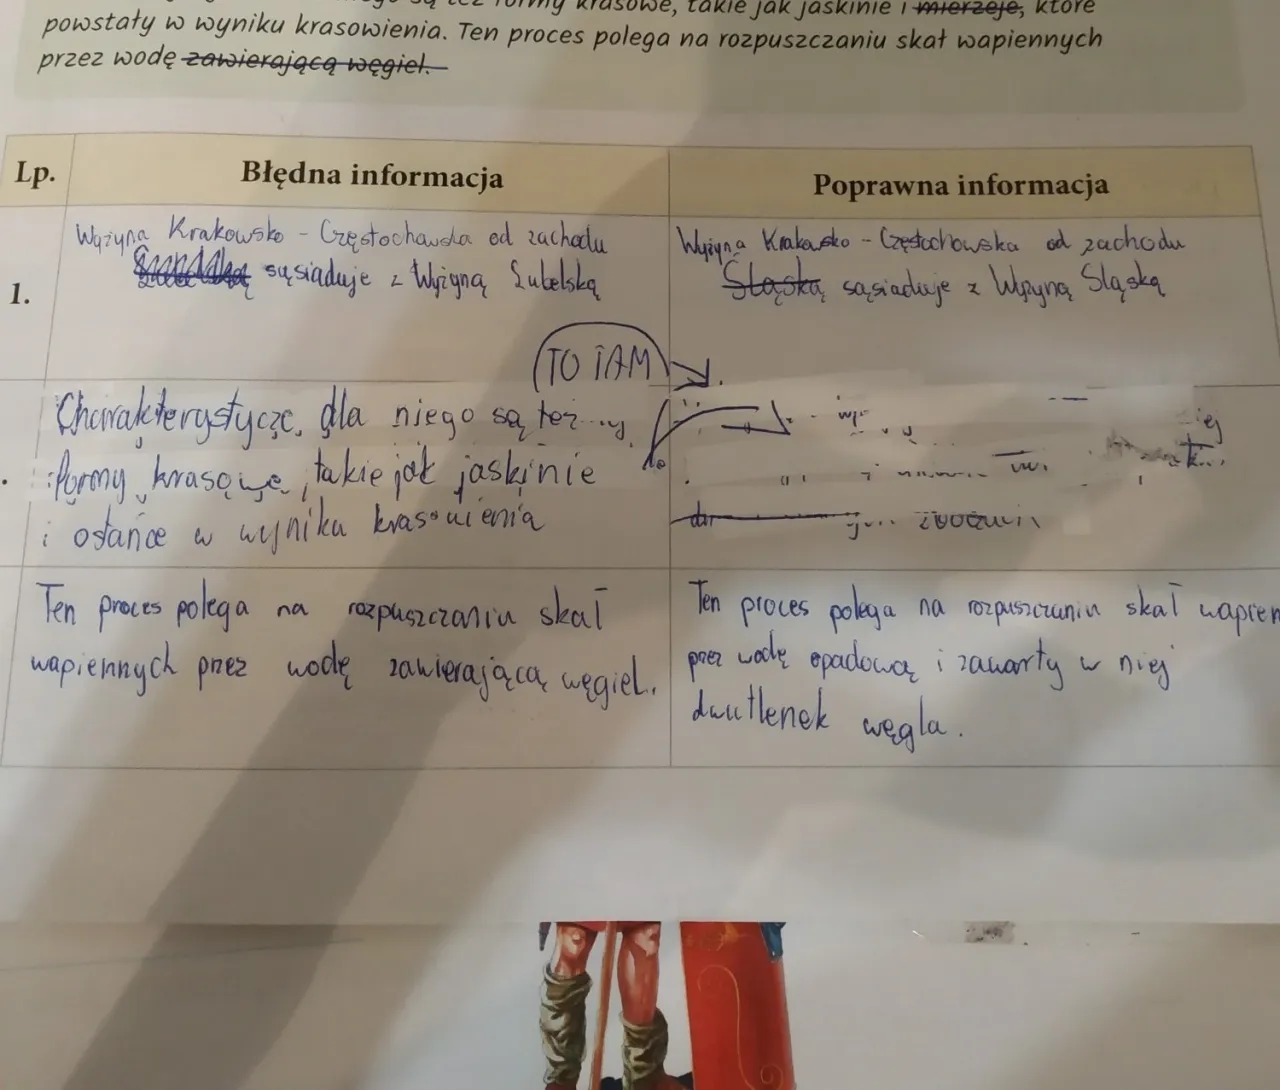 formy krasowe, takie jak jaskinie i mierzeje, które
powstały w wyniku krasowienia. Ten proces polega na rozpuszczaniu skał wapiennych
przez wodę zawierającą węgiel.
Lp. Błędna informacja Poprawna informacja
1.
Wyżyna Krakowsko - Częstochowska od zachodu
sąsiaduje z Wyżyną Lubelską
Wyżyna Krakowsko - Częstochowska od zachodu
Śląską sąsiaduje z Wyżyną Śląską
TO TAM
Charakterystyczę dla niego są też
formy krasowe, takie jak jaskinie
i ostańce w wyniku krasowienia
Ten proces polega na rozpuszczaniu skał
wapiennych przez wodę zawierającą węgiel.
Ten proces polega na rozpuszczaniu skał wapien
przez wodę opadową i zawarty w niej
dwutlenek węgla.